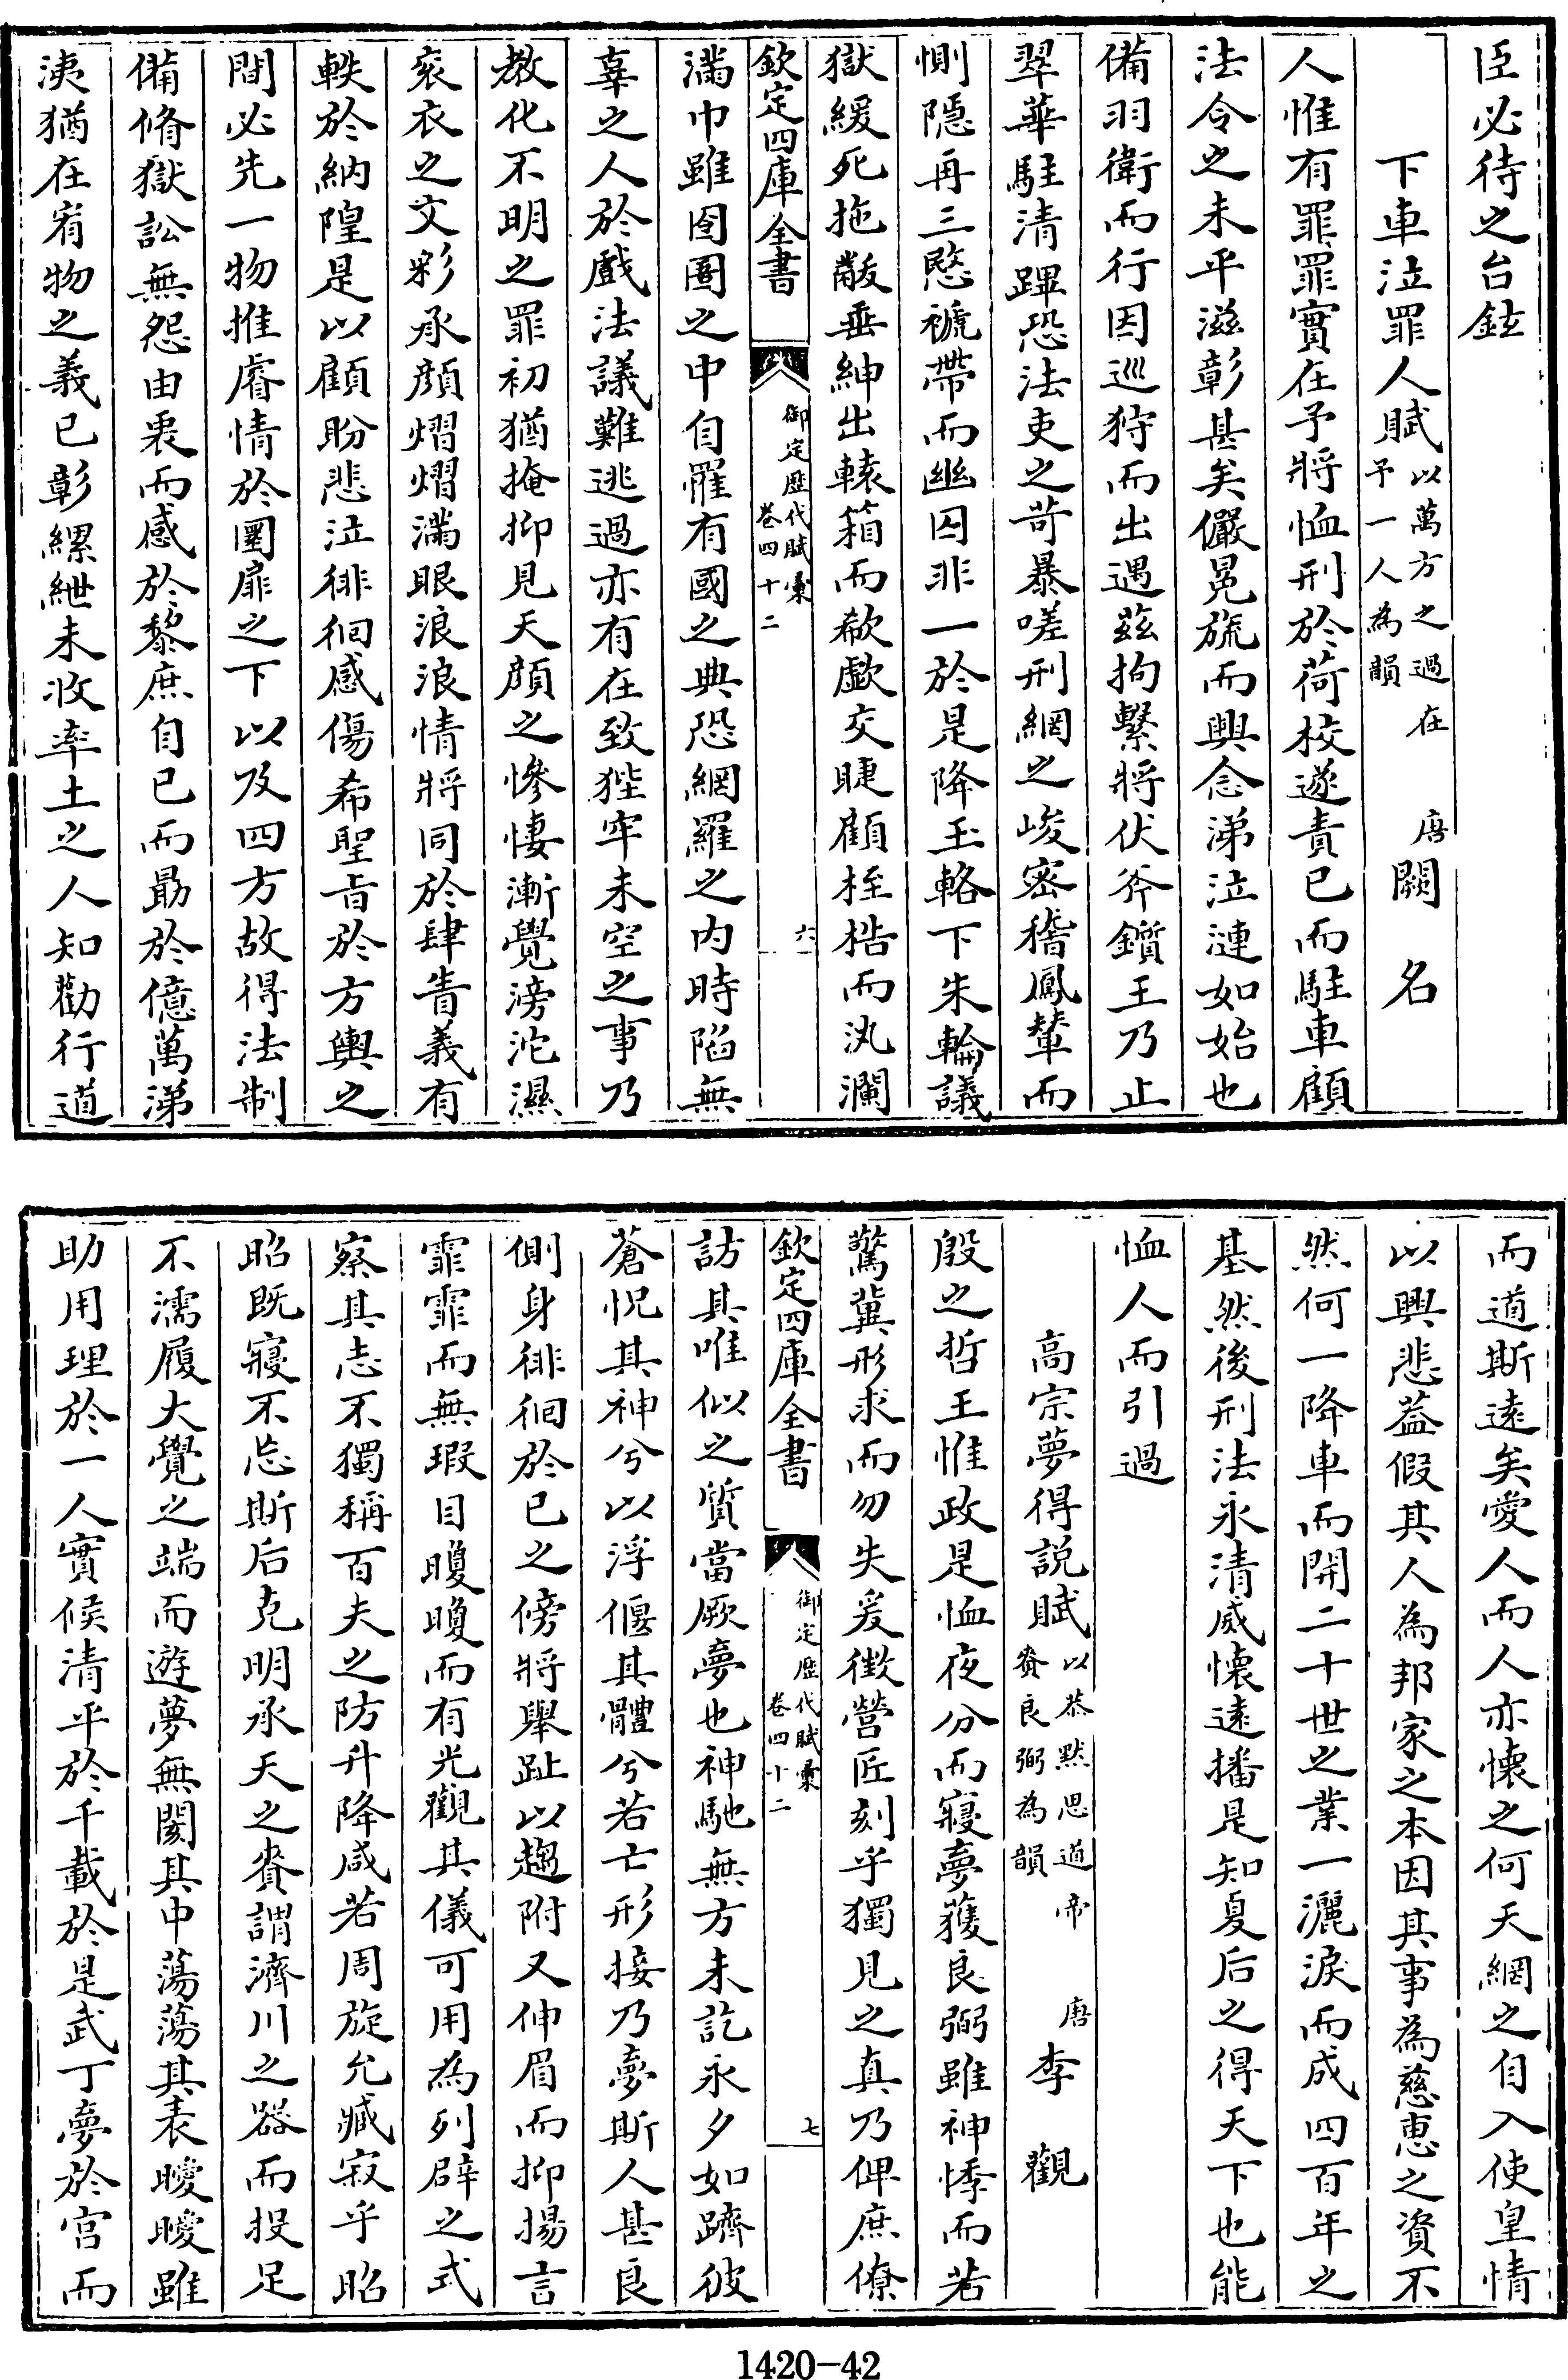 臣必待之台鉉
下車泣罪人賦以萬方之過在予一人為韻 唐 闕名
人惟有罪罪實在予將恤刑於荷校遂責已而駐車顧
法令之未平滋彰甚矣儼冕旒而興念涕泣漣如始也
備羽衛而行因巡狩而出遇茲拘繫將伏斧鑕王乃止
翠華駐清蹕恐法吏之苛暴嗟刑網之峻密稽鳳輦而
惻隠再三愍褫帶而幽囚非一於是降玉輅下朱輪議
獄緩死拖黻垂紳出轅箱而欷歔交睫顧桎梏而汍瀾
欽定四庫全書 御定歴代賦彙 卷四十二 六
滿巾雖囹圄之中自罹有國之典恐網羅之内時陷無
辜之人於戲法議難逃過亦有在致狴牢未空之事乃
教化不明之罪初猶掩抑見天顔之慘悽漸覺滂沱濕
衮衣之文彩承顔熠熠滿眼浪浪情將同於肆眚義有
軼於納隍是以顧盼悲泣徘徊感傷希聖旨於方輿之
間必先一物推睿情於圜扉之下以及四方故得法制
備脩獄訟無怨由衷而感於黎庶自已而勗於億萬涕
洟猶在宥物之義已彰縲紲未收率土之人知勸行道
而道斯遠矣愛人而人亦懷之何天網之自入使皇情
以興悲葢假其人為邦家之本因其事為慈惠之資不
然何一降車而開二十世之業一灑淚而成四百年之
基然後刑法永清威懷遠播是知夏后之得天下也能
恤人而引過
高宗夢得説賦以恭黙思道帝賚良弼為韻 唐 李觀
殷之哲王惟政是恤夜分而寢夢獲良弼雖神悸而若
驚冀形求而勿失爰徵營匠刻乎獨見之真乃俾庶僚
欽定四庫全書 御定歴代賦彙 卷四十二 七
訪其唯似之質當厥夢也神馳無方未訖永夕如躋彼
蒼怳其神兮以浮偃其體兮若亡形接乃夢斯人甚良
側身徘徊於已之傍將舉趾以趨附又伸眉而抑揚言
霏霏而無瑕目瞍瞍而有光觀其儀可用為列辟之式
察其志不獨稱百夫之防升降咸若周旋允臧寂乎昭
昭既寢不忘斯后克明承天之賚謂濟川之器而投足
不濡履大覺之端而遊夢無閡其中蕩蕩其表曖曖雖
助用理於一人實候清平於千載於是武丁夢於宫而
1420-42